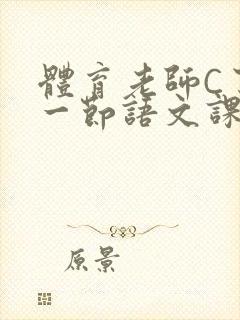 體育老師C
一節語文課
原景